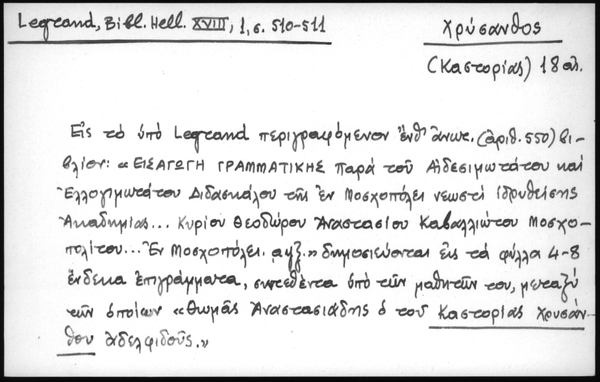 Legrand, Bibl. Hell. XVIII, 1, σ. 510-511
Χρύσανθος
(Καστορίας) 18 αι.
Εἰς τὸ ὑπὸ Legrand περιγραφόμενον ἔνθ' ἄνωτ. (ἀριθ. 550) βι-
βλίον: « ΕΙΣΑΓΩΓΗ ΓΡΑΜΜΑΤΙΚΗΣ παρὰ τοῦ Αἰδεσιμωτάτου καὶ
Ἐλλογιμωτάτου Διδασκάλου τῆς ἐν Μοσχοπόλει νεωστὶ ἱδρυθείσης
Ἀκαδημίας... Κυρίου Θεοδώρου Ἀναστασίου Καβαλλιώτου Μοσχο-
πολίτου... Ἐν Μοσχοπόλει. αψξ.» δημοσιεύονται εἰς τὰ φύλλα 4-8
ἕνδεκα ἐπιγράμματα, συντεθέντα ὑπὸ τῶν μαθητῶν του, μεταξὺ
τῶν ὁποίων « Θωμᾶς Ἀναστασιάδης ὁ τοῦ Καστορίας Χρυσάν-
θου ἀδελφιδοῦς.»